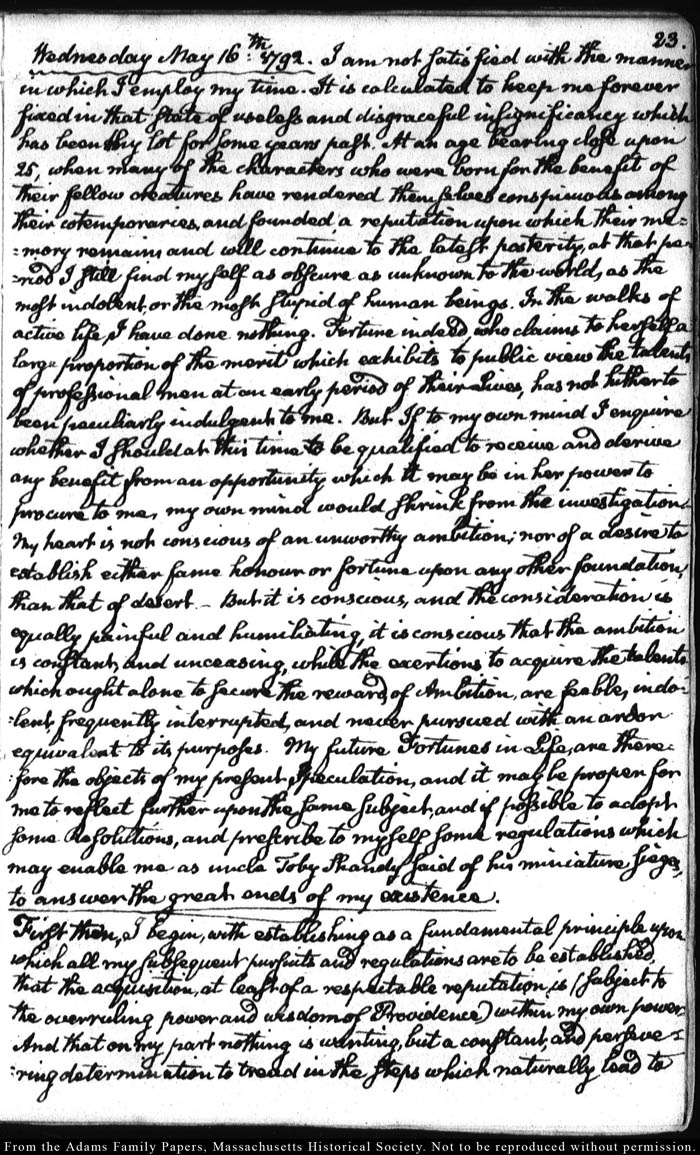 23.
Wednesday May 16th: 1792. I am not satisfied with the manner
in which I employ my time. It is calculated to keep me forever
fixed in that state of useless and disgraceful insignificancy which
has been my lot for some years past. At an age bearing close upon
25, when many of the characters who were born for the benefit of
their fellow creatures have rendered themselves conspicuous among
their cotemporaries, and founded a reputation upon which their me=
=mory remains and will continue to the latest posterity, at that pe=
=riod I still find myself as obscure as unknown to the world, as the
most indolent, or the most stupid of human beings. In the walks of
active life, I have done nothing. Fortune indeed who claims to herself a
large proportion of the merit which exhibits to public view the talents
of professional men at an early period of their Lives, has not hitherto
been peculiarly indulgent to me. But If to my own mind I enquire
whether I should at this time to be qualified to receive and derive
any benefit from an opportunity which it may be in her power to
procure to me, my own mind would shrink from the investigation.
My heart is not conscious of an unworthy ambition; nor of a desire to
establish either fame honour or fortune upon any other foundation,
than that of desert. - But it is conscious, and the consideration is
equally painful and humiliating, it is conscious that the ambition
is constant, and unceasing, while the exertions to acquire the talents
which ought alone to secure the reward of Ambition, are feeble, indo=
=lent, frequently interrupted, and never pursued with an ardor
equivalent to its purposes. My future Fortunes in Life, are there=
=fore the objects of my present Speculation, and it may be proper for
me to reflect further upon the same subject, and if possible to adopt
some Resolutions, and prescribe to myself some regulations which
may enable me as uncle Toby Shandy said of his miniature sieges,
to answer the great ends of my existence.
First then, I begin, with establishing as a fundamental principle upon
which all my subsequent pursuits and regulations are to be established,
that the acquisition, at least of a respectable reputation, is (subject to
the overruling power and wisdom of Providence,) within my own power.
And that on my part nothing is wanting, but a constant, and perseve=
=ring determination to tread in the steps which naturally lead to
From the Adams Family Papers, Massachusetts Historical Society. Not to be reproduced without permission.